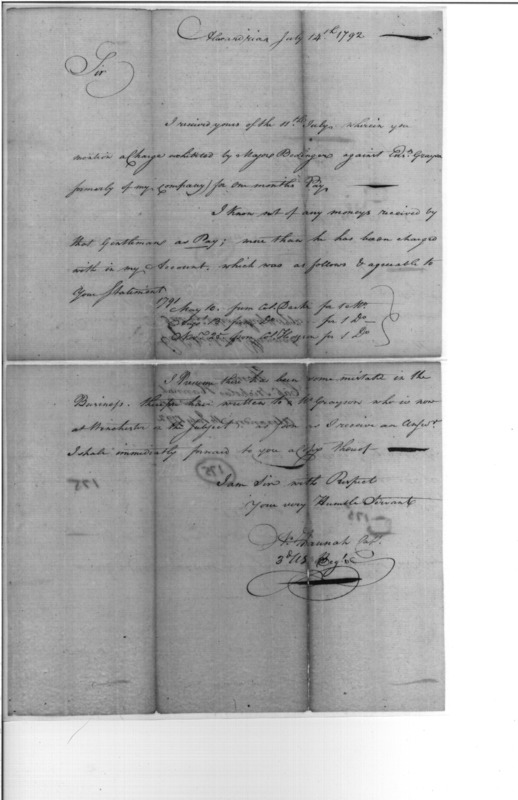 Alexandria July 14th 1792
Sir
I received yours of the 11th July wherein you
mention a Charge exhibited by Major against Grayson
formerly of my company) for one months Pay
I know not of any moneys received by
that Gentleman as Pay; more than he has been charged
with in my Account, which was as follows & agreeable to
Your Statement
1791
May 16. from Col. Darke for 1 Mo.
for 1 Do
from for 1 Do
I Presume there has been some mistake in the
Business. therefore have written to Mr Grayson who is now
at Winchester on the subject as soon as I receive an Answr.
I shall immediately forward to you a Copy thereof
175
I am Sir with Respect
Your very Humble Servant
Hannah Capt.
3d US Regt.